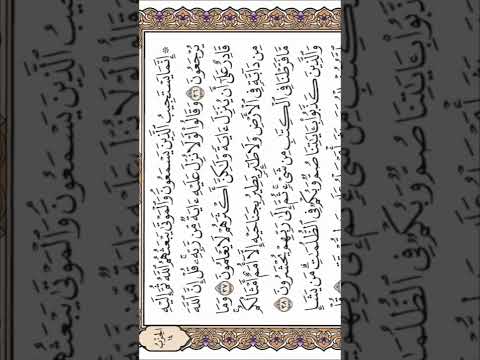 الحزب
۞ إِنَّمَا يَسْتَجِيبُ ٱلَّذِينَ يَسْمَعُونَ وَٱلْمَوْتَىٰ يَبْعَثُهُمُ ٱللَّهُ ثُمَّ إِلَيْهِ
يُرْجَعُونَ ٣٦ وَقَالُوا۟ لَوْلَا نُزِّلَ عَلَيْهِ ءَايَةٌ مِّن رَّبِّهِۦ قُلْ إِنَّ ٱللَّهَ
قَادِرٌ عَلَىٰٓ أَن يُنَزِّلَ ءَايَةً وَلَٰكِنَّ أَكْثَرَهُمْ لَا يَعْلَمُونَ ٣٧ وَمَا
مِن دَآبَّةٍ فِى ٱلْأَرْضِ وَلَا طَٰٓئِرٍ يَطِيرُ بِجَنَاحَيْهِ إِلَّآ أُمَمٌ أَمْثَالُكُم
مَّا فَرَّطْنَا فِى ٱلْكِتَٰبِ مِن شَىْءٍ ثُمَّ إِلَىٰ رَبِّهِمْ يُحْشَرُونَ ٣٨
وَٱلَّذِينَ كَذَّبُوا۟ بِـَٔايَٰتِنَا صُمٌّ وَبُكْمٌ فِى ٱلظُّلُمَٰتِ مَن يَشَإِ